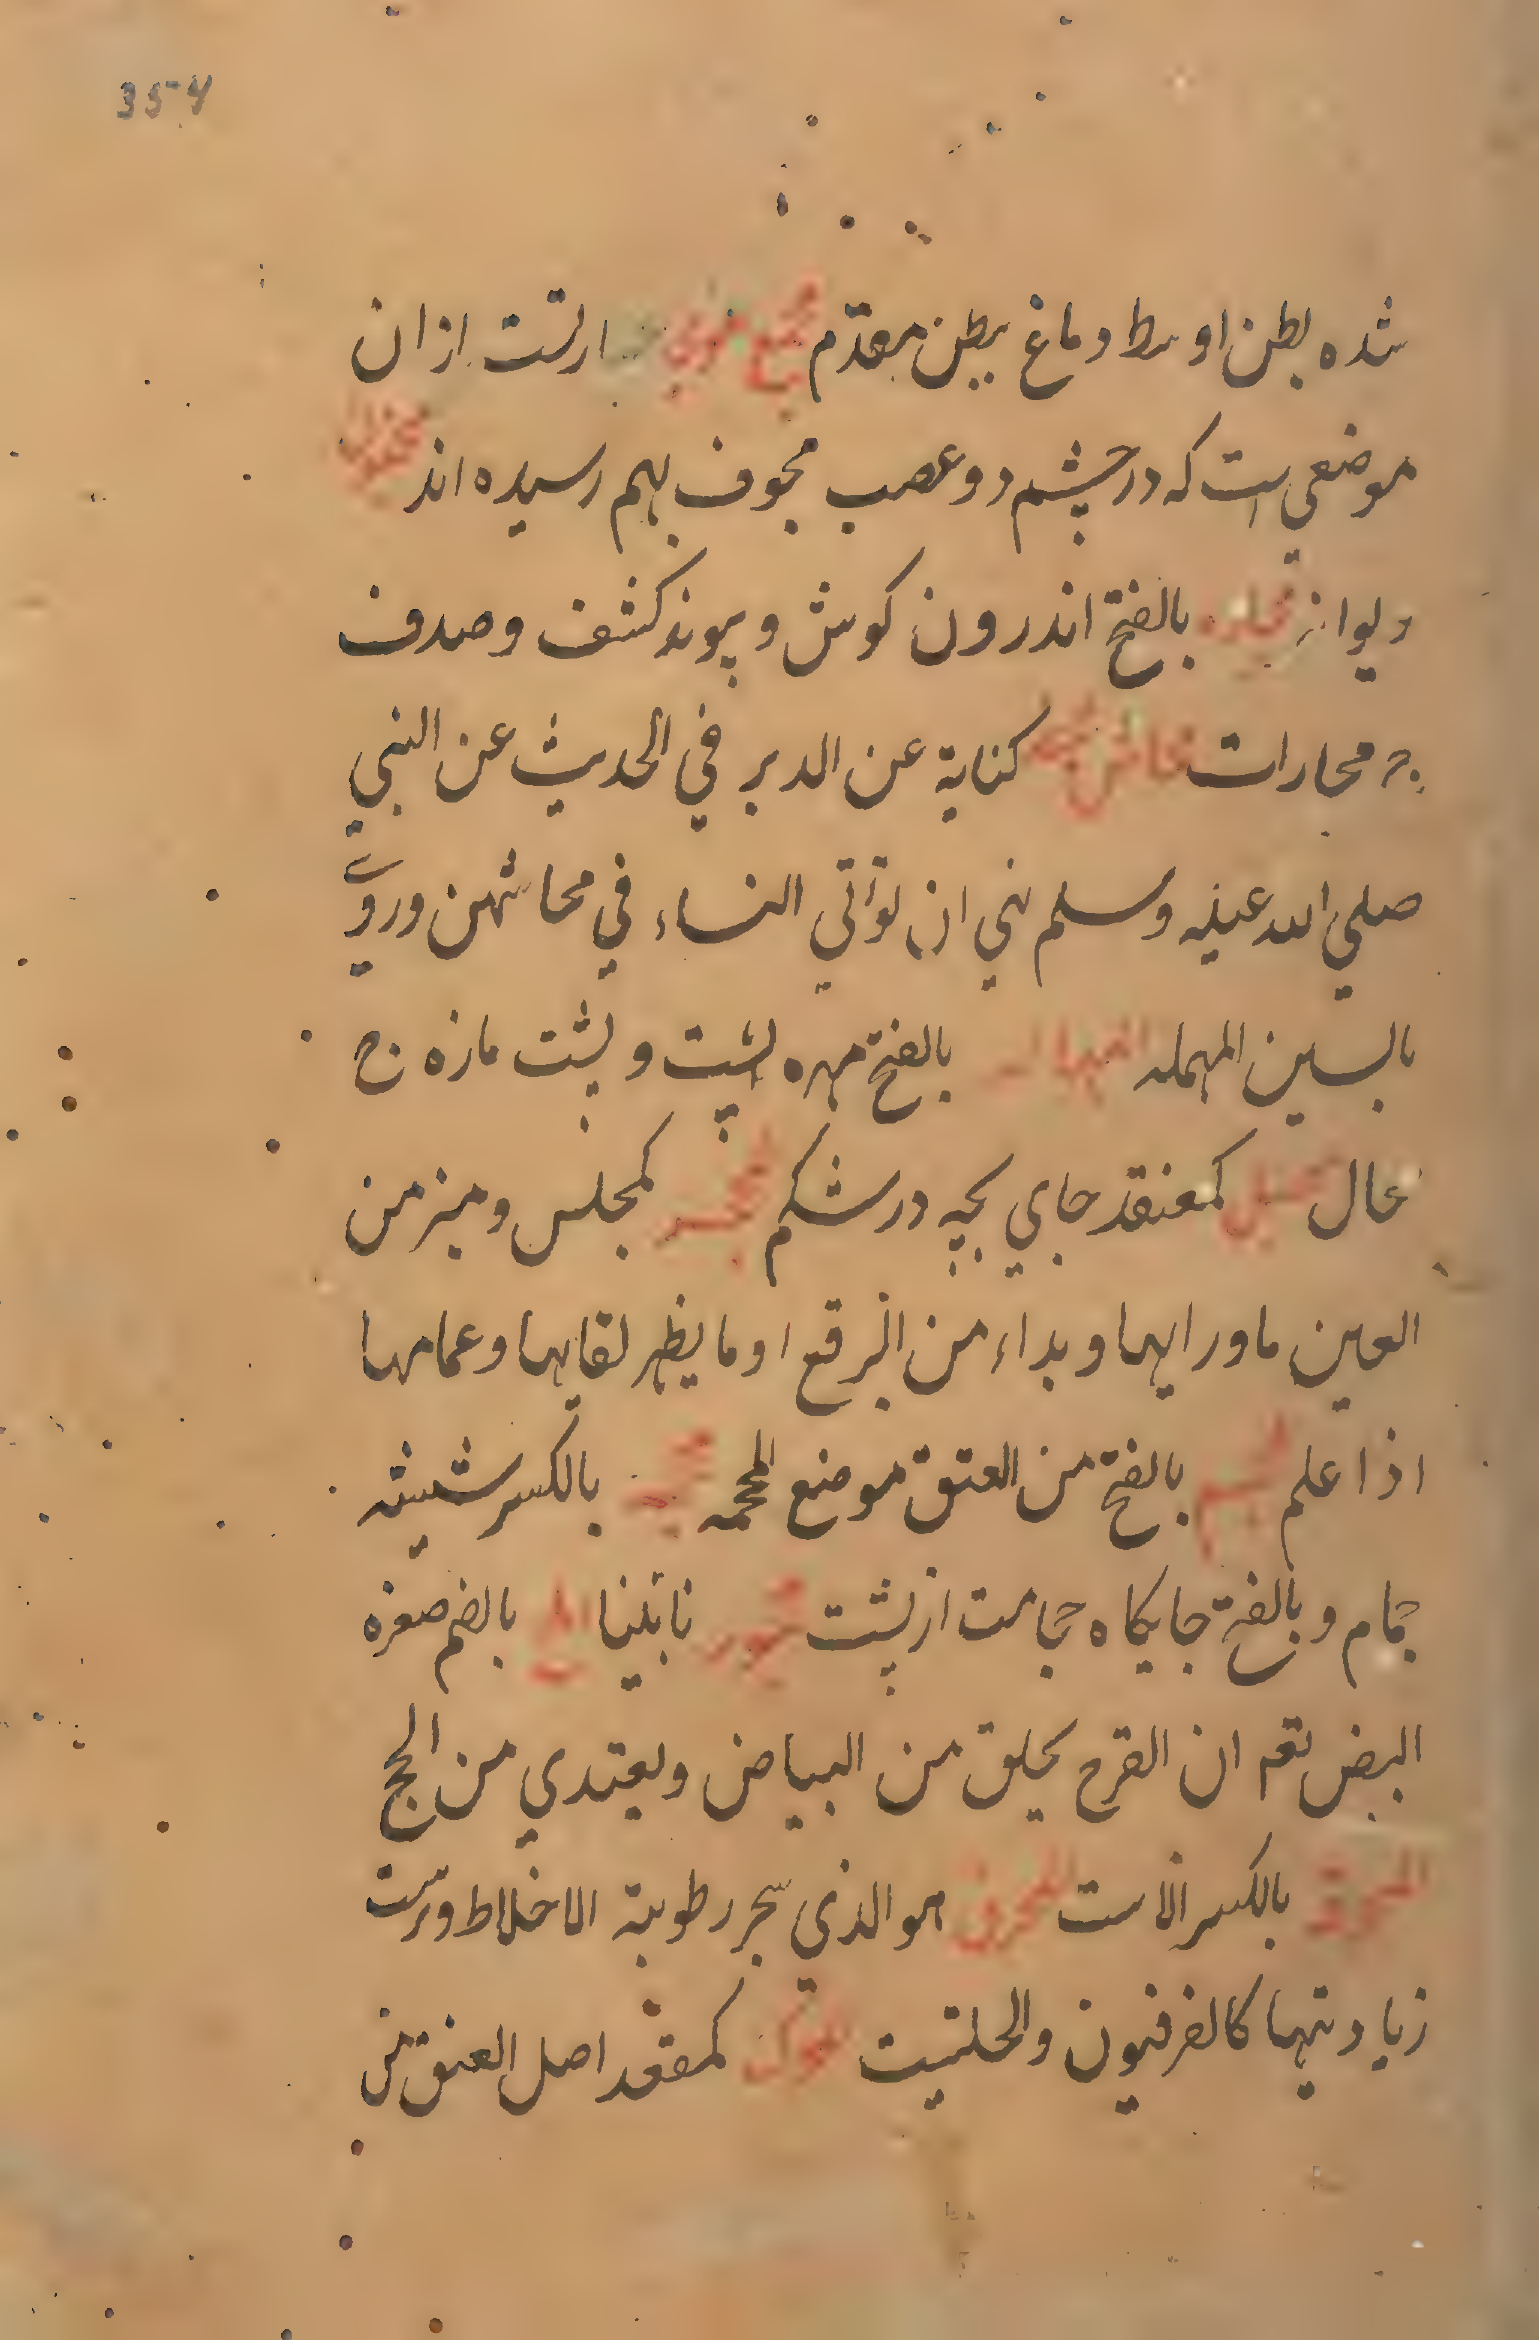 354
شده بطن اوسط دماغ ببطن مقدم مجمع النور عبارتست از ان
موضعی است که در چشم دو عصب مجوف بهم رسیده اند
دیوانه محاره بالفتح اندرون کوش و پیوند کتف و صدف
ج محارات محاش کنایة عن الدبر في الحدیث عن النبي
صلي الله علیه وسلم نهي ان تؤتي النساء في محاشهن وروي
بالسین المهمله المحاله بالفتح مهره پشت و پشت مازه ج
محال محبل کمعنقد جاي بچه در شکم محجر کمجلس ومنبر من
العین ما دار بها وبداء من البرقع او ما یظهر من نقابها وعمامها
اذا علم محجم بالفتح من العنق موضع المحجمه محجمه بالکسر شیشه
حجام و بالفتح جایکاه حجامت از پشت نابینا المح بالضم صفرة
البیض نعم ان الفرخ یخلق من البیاض ویغتدي من المح
بالکسر الاست المحرق هو الذي رطوبة الاخلاط
زیادتیها کالفرفیون والحلتیت کمقعد اصل العنق من